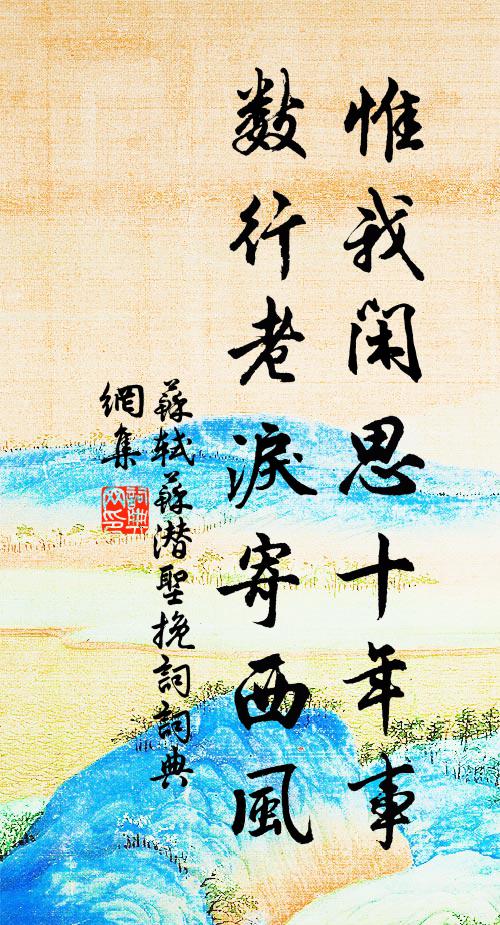 惟我閑思十年事
數行老淚寄西風
蘇軾蘇潛聖挽詞詞典
網集
詞典網印